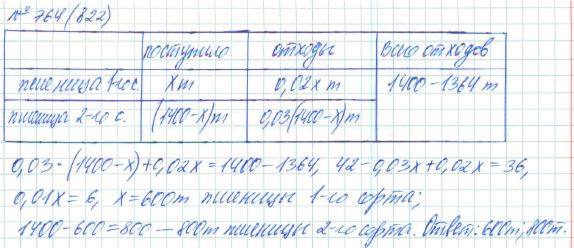 № 764 (822)
поступило отходы Всего отходов
пшеница 1-го с. x т 0,02x т 1400-1364 т
пшеница 2-го с. (1400-x) т 0,03(1400-x) т
0,03·(1400-x)+0,02x=1400-1364, 42-0,03x+0,02x=36,
0,01x=6, x=600т пшеницы 1-го сорта;
1400-600=800 — 800т пшеницы 2-го сорта. Ответ: 600т; 800т.